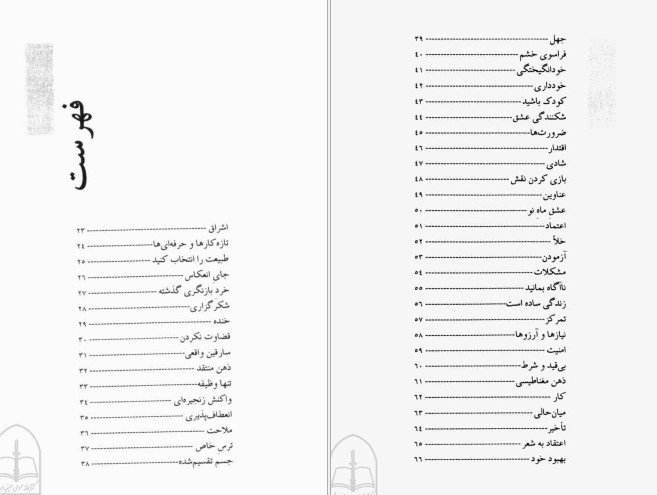 فهرست
اشراق ---------- ۲۳
تازه‌کارها و حرفه‌ای‌ها ---------- ۲۴
طبیعت را انتخاب کنید ---------- ۲۵
جای انعکاس ---------- ۲۶
خرد بازنگری گذشته ---------- ۲۷
شکرگزاری ---------- ۲۸
خنده ---------- ۲۹
قضاوت نکردن ---------- ۳۰
سارقین واقعی ---------- ۳۱
ذهن منتقد ---------- ۳۲
تنها وظیفه ---------- ۳۳
واکنش زنجیره‌ای ---------- ۳۴
انعطاف‌پذیری ---------- ۳۵
ملاحت ---------- ۳۶
ترس خاص ---------- ۳۷
جسم تقسیم‌شده ---------- ۳۸
جهل ---------- ۳۹
فراسوی خشم ---------- ۴۰
خودانگیختگی ---------- ۴۱
خودداری ---------- ۴۲
کودک باشید ---------- ۴۳
شکنندگی عشق ---------- ۴۴
ضرورت‌ها ---------- ۴۵
اقتدار ---------- ۴۶
شادی ---------- ۴۷
بازی کردن نقش ---------- ۴۸
عناوین ---------- ۴۹
عشق ماهِ نو ---------- ۵۰
اعتماد ---------- ۵۱
خلأ ---------- ۵۲
آزمودن ---------- ۵۳
مشکلات ---------- ۵۴
ناآگاه بمانید ---------- ۵۵
زندگی ساده است ---------- ۵۶
تمرکز ---------- ۵۷
نیازها و آرزوها ---------- ۵۸
امنیت ---------- ۵۹
بی‌قید و شرط ---------- ۶۰
ذهن مغناطیسی ---------- ۶۱
کار ---------- ۶۲
میان‌حالی ---------- ۶۳
تأخیر ---------- ۶۴
اعتقاد به شعر ---------- ۶۵
بهبود خود ---------- ۶۶